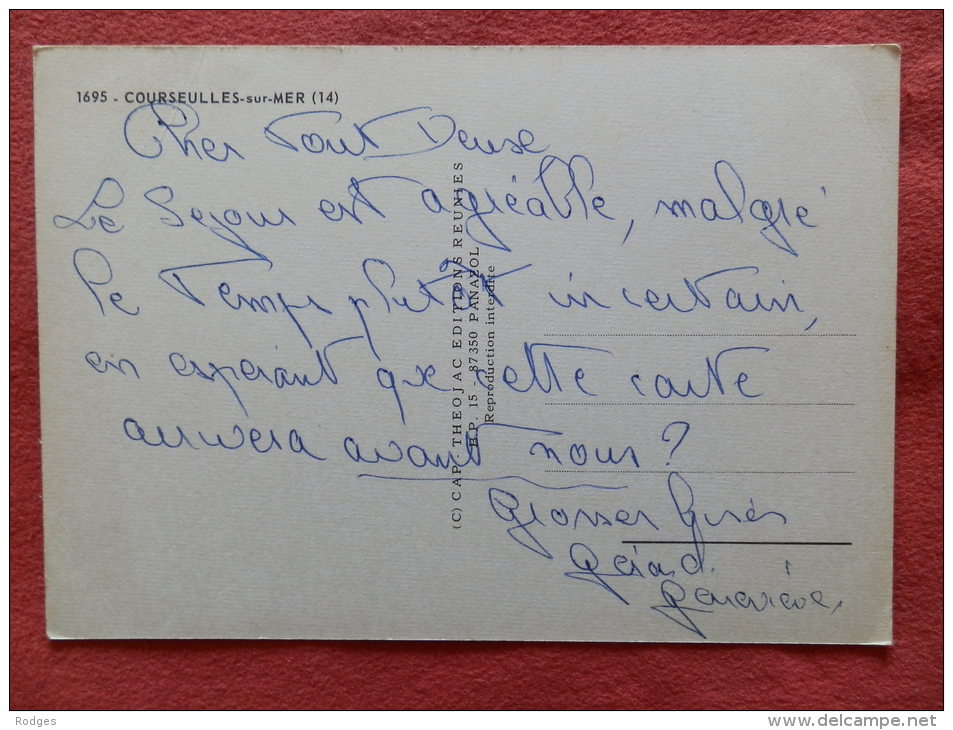 1695 - COURSEULLES-sur-MER (14)
Cher Tout
Le Sejour est agréable, malgré
le Temps plutôt incertain,
en espérant que cette carte
arrivera avant nous ?
Grosses
Gérard
Geneviève
(C) CAP-THEOJAC EDITIONS REUNIES
B.P. 15 - 87350 PANAZOL
Reproduction interdite
Rodges
www.delcampe.net